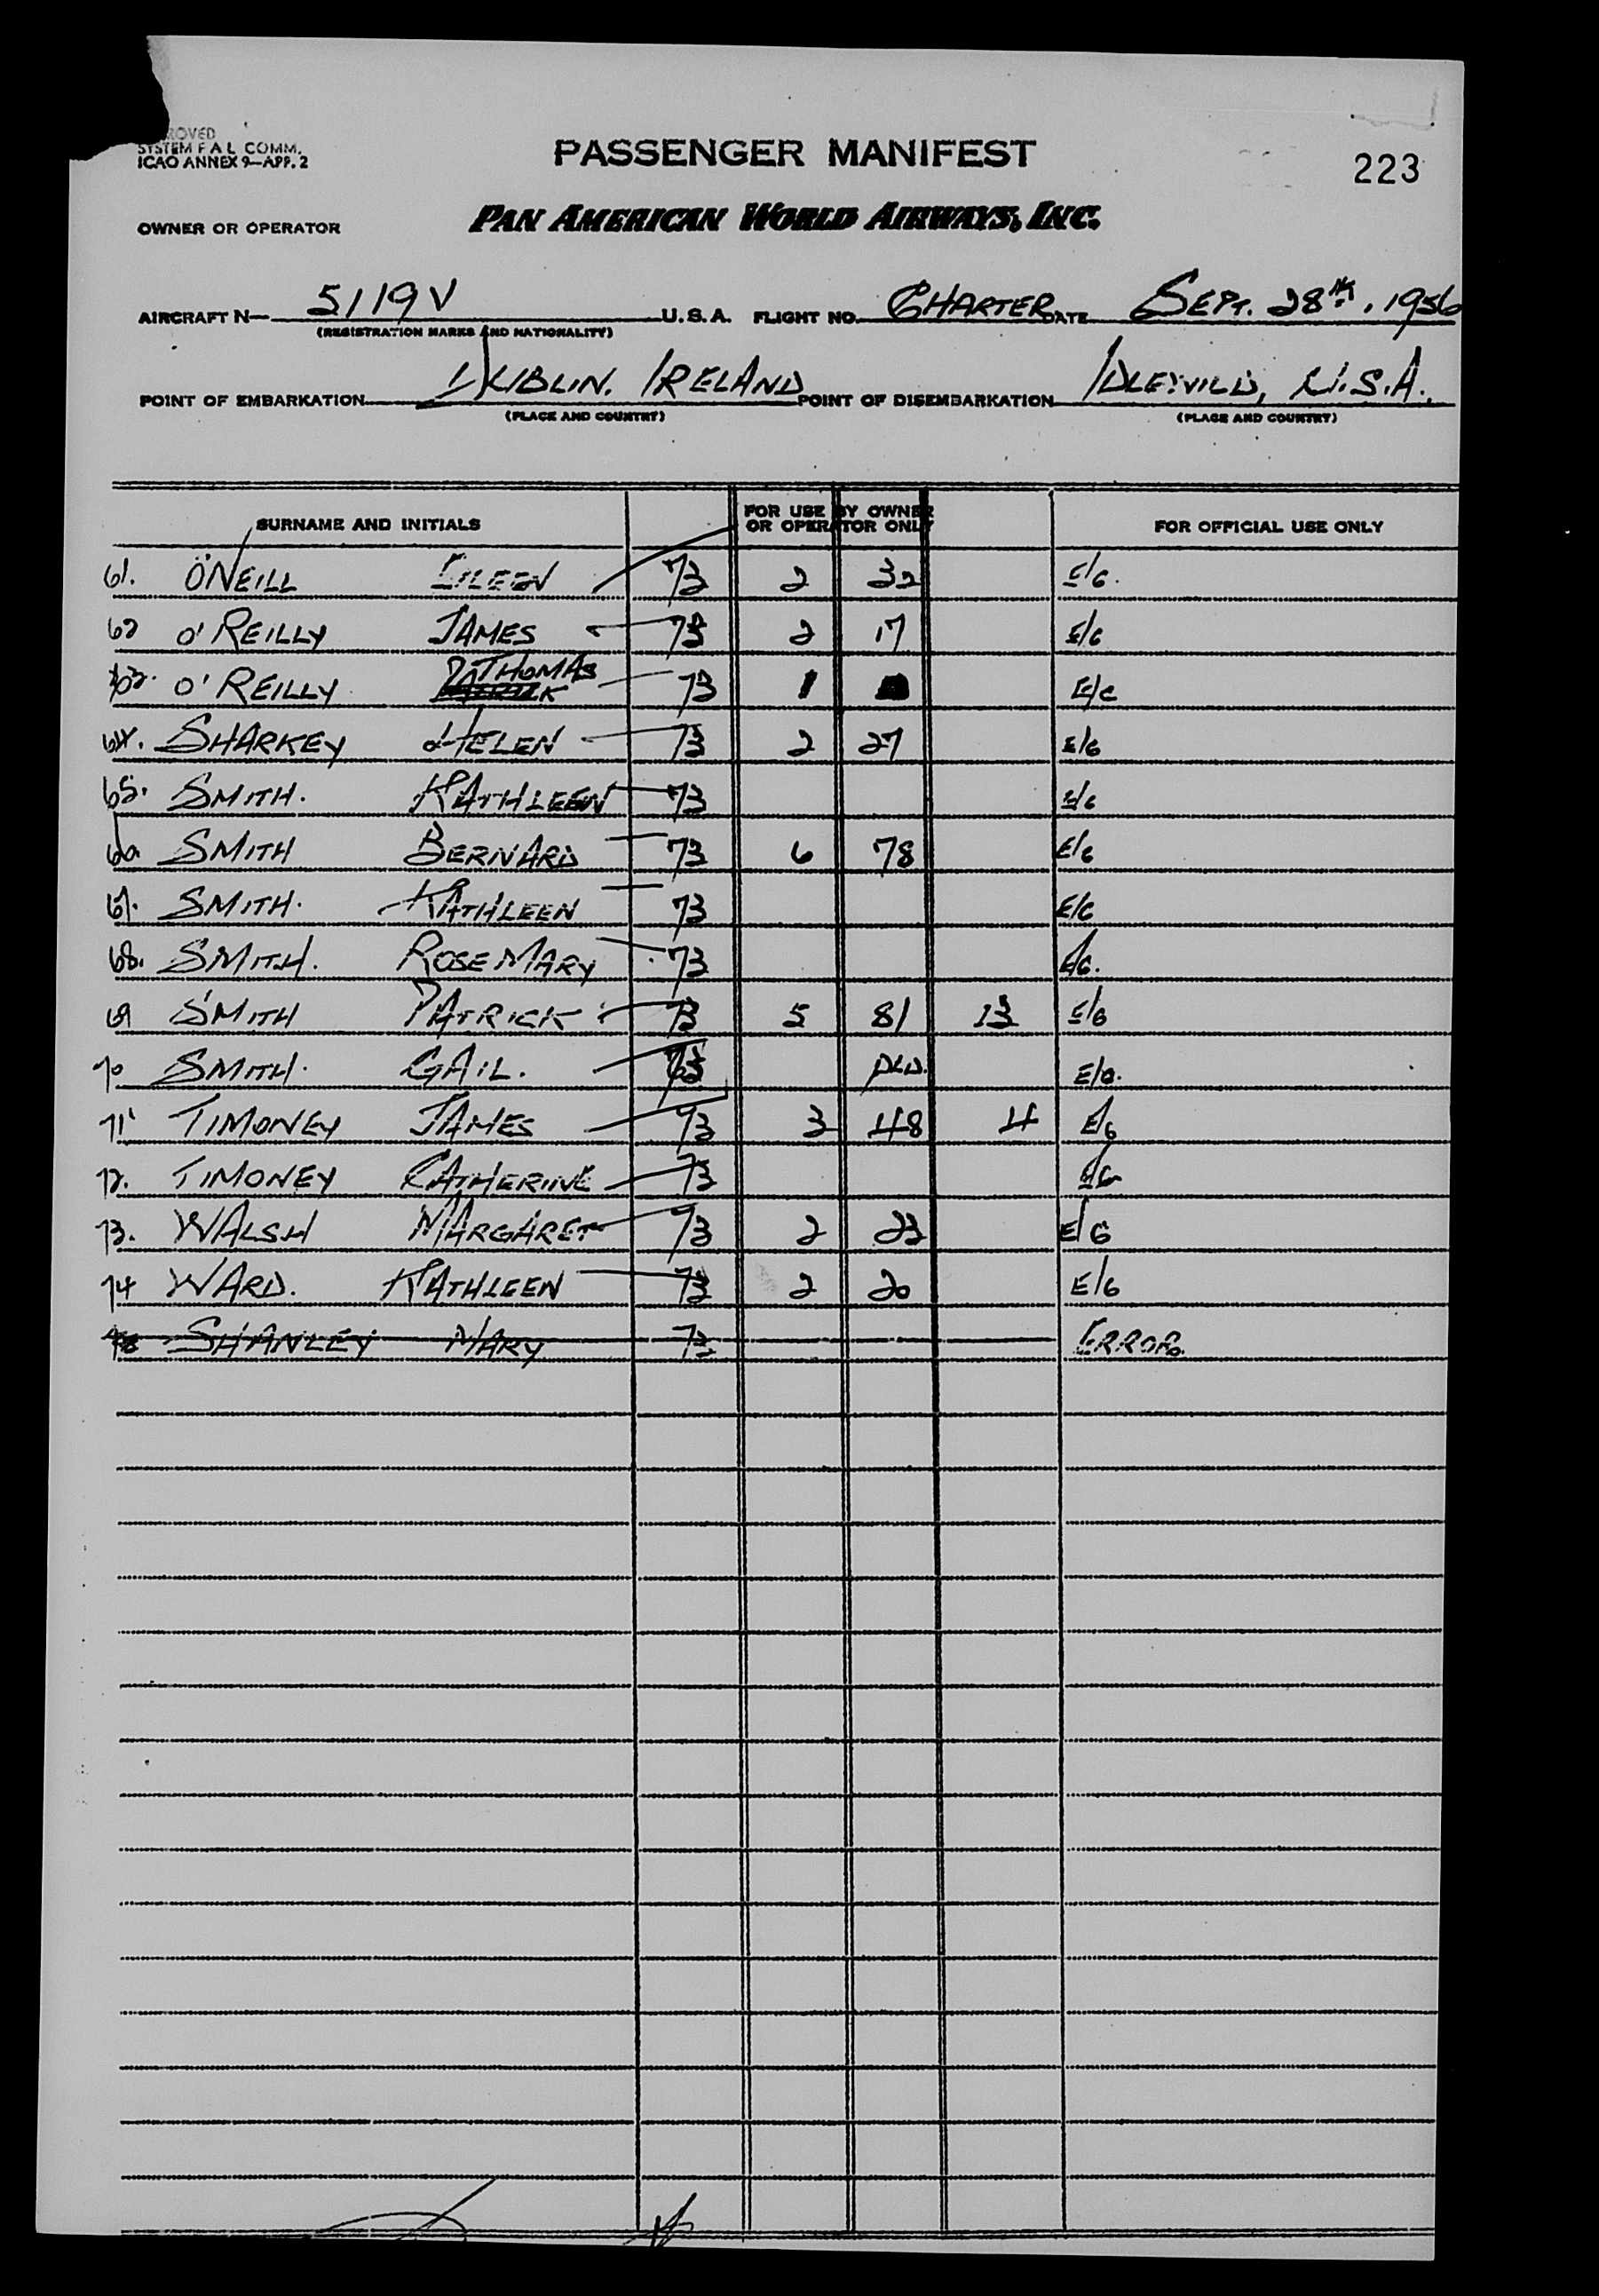 ROVED
SYSTEM F A L COMM.
ICAO ANNEX 9—APP. 2
PASSENGER MANIFEST
223
OWNER OR OPERATOR PAN AMERICAN WORLD AIRWAYS, INC.
AIRCRAFT N— 5119V U.S.A. FLIGHT NO. CHARTER DATE SEPT. 28th, 1956
(REGISTRATION MARKS AND NATIONALITY)
POINT OF EMBARKATION DUBLIN. IRELAND POINT OF DISEMBARKATION IDLEWILD, U.S.A.
(PLACE AND COUNTRY) (PLACE AND COUNTRY)
SURNAME AND INITIALS FOR USE BY OWNER OR OPERATOR ONLY FOR OFFICIAL USE ONLY
61. O'NEILL EILEEN 73 2 32 E/C.
62 O'REILLY JAMES 73 2 17 E/C
63. O'REILLY THOMAS 73 1 E/C
64. SHARKEY HELEN 73 2 27 E/C
65. SMITH. KATHLEEN 73 E/C
66 SMITH BERNARD 73 6 78 E/C
67. SMITH. KATHLEEN 73 E/C
68. SMITH. ROSEMARY 73 E/C.
69 SMITH PATRICK 73 5 81 13 E/C
70 SMITH. GAIL. 73 E/C.
71 TIMONEY JAMES 73 3 48 4 E/C
72. TIMONEY CATHERINE 73 E/C
73. WALSH MARGARET 73 2 23 E/C
74 WARD. KATHLEEN 73 2 20 E/C
SHANLEY MARY 73 ERROR.